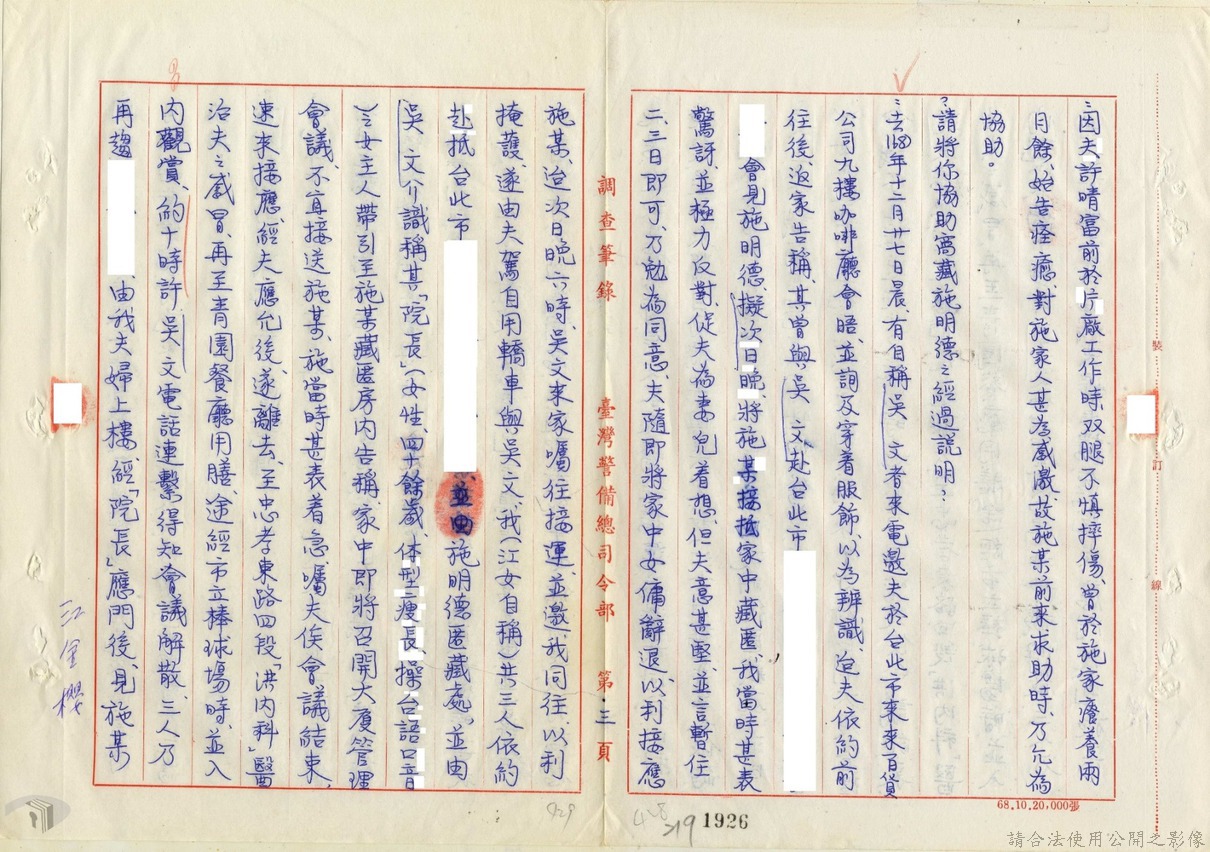 ：因夫許晴富前於片廠工作時，双腿不慎摔傷，曾於施家療養兩
月餘，始告痊癒，對施家人甚為感激，故施某前來求助時，乃允為
協助。
？請將你協助窩藏施明德之經過説明？
：去（68）年十二月卅七日晨，有自稱吳　文者來電邀夫於台北市來來百貨
公司九樓咖啡廳會晤，並詢及穿着服飾，以為辨識，迨夫依約前
往後，返家告稱，其曾與吳　文，赴台北市
會見施明德，擬次日晚，將施某接抵家中藏匿，我當時甚表
驚訝，並極力反對，促夫為妻兒着想，但夫意甚堅，並言暫住
二、三日即可，乃勉為同意，夫隨即將家中女傭辭退，以利接應
施某，迨次日晚六時，吳文來家囑往接運，並邀我同往，以利
掩護，遂由夫駕自用轎車與吳文、我（江女自稱）共三人依約
赴抵台北市　　，並由施明德匿藏處，並由
吳　文介識稱其「院長」（女性，四十餘歲，体型瘦長，操台語口音
）之女主人帶引至施某藏匿房內告稱，家中即將召開大廈管理
會議，不宜接送施某，施當時甚表着急，囑夫俟會議結束，
速來接應，經夫應允後，遂離去，至忠孝東路四段「洪內科」醫
治夫之感冒，再至青園餐廳用膳，途經市立棒球場時，並入
內觀賞，約十時許，吳　文電話連繫得知會議解散，三人乃
再趨　　，由我夫婦上樓，經「院長」應門後，見施某
調查筆錄　臺灣警備總司令部　第三頁
裝
訂
線
江金櫻
68.10.20,000張
428
429
219
1926
請合法使用公開之影像